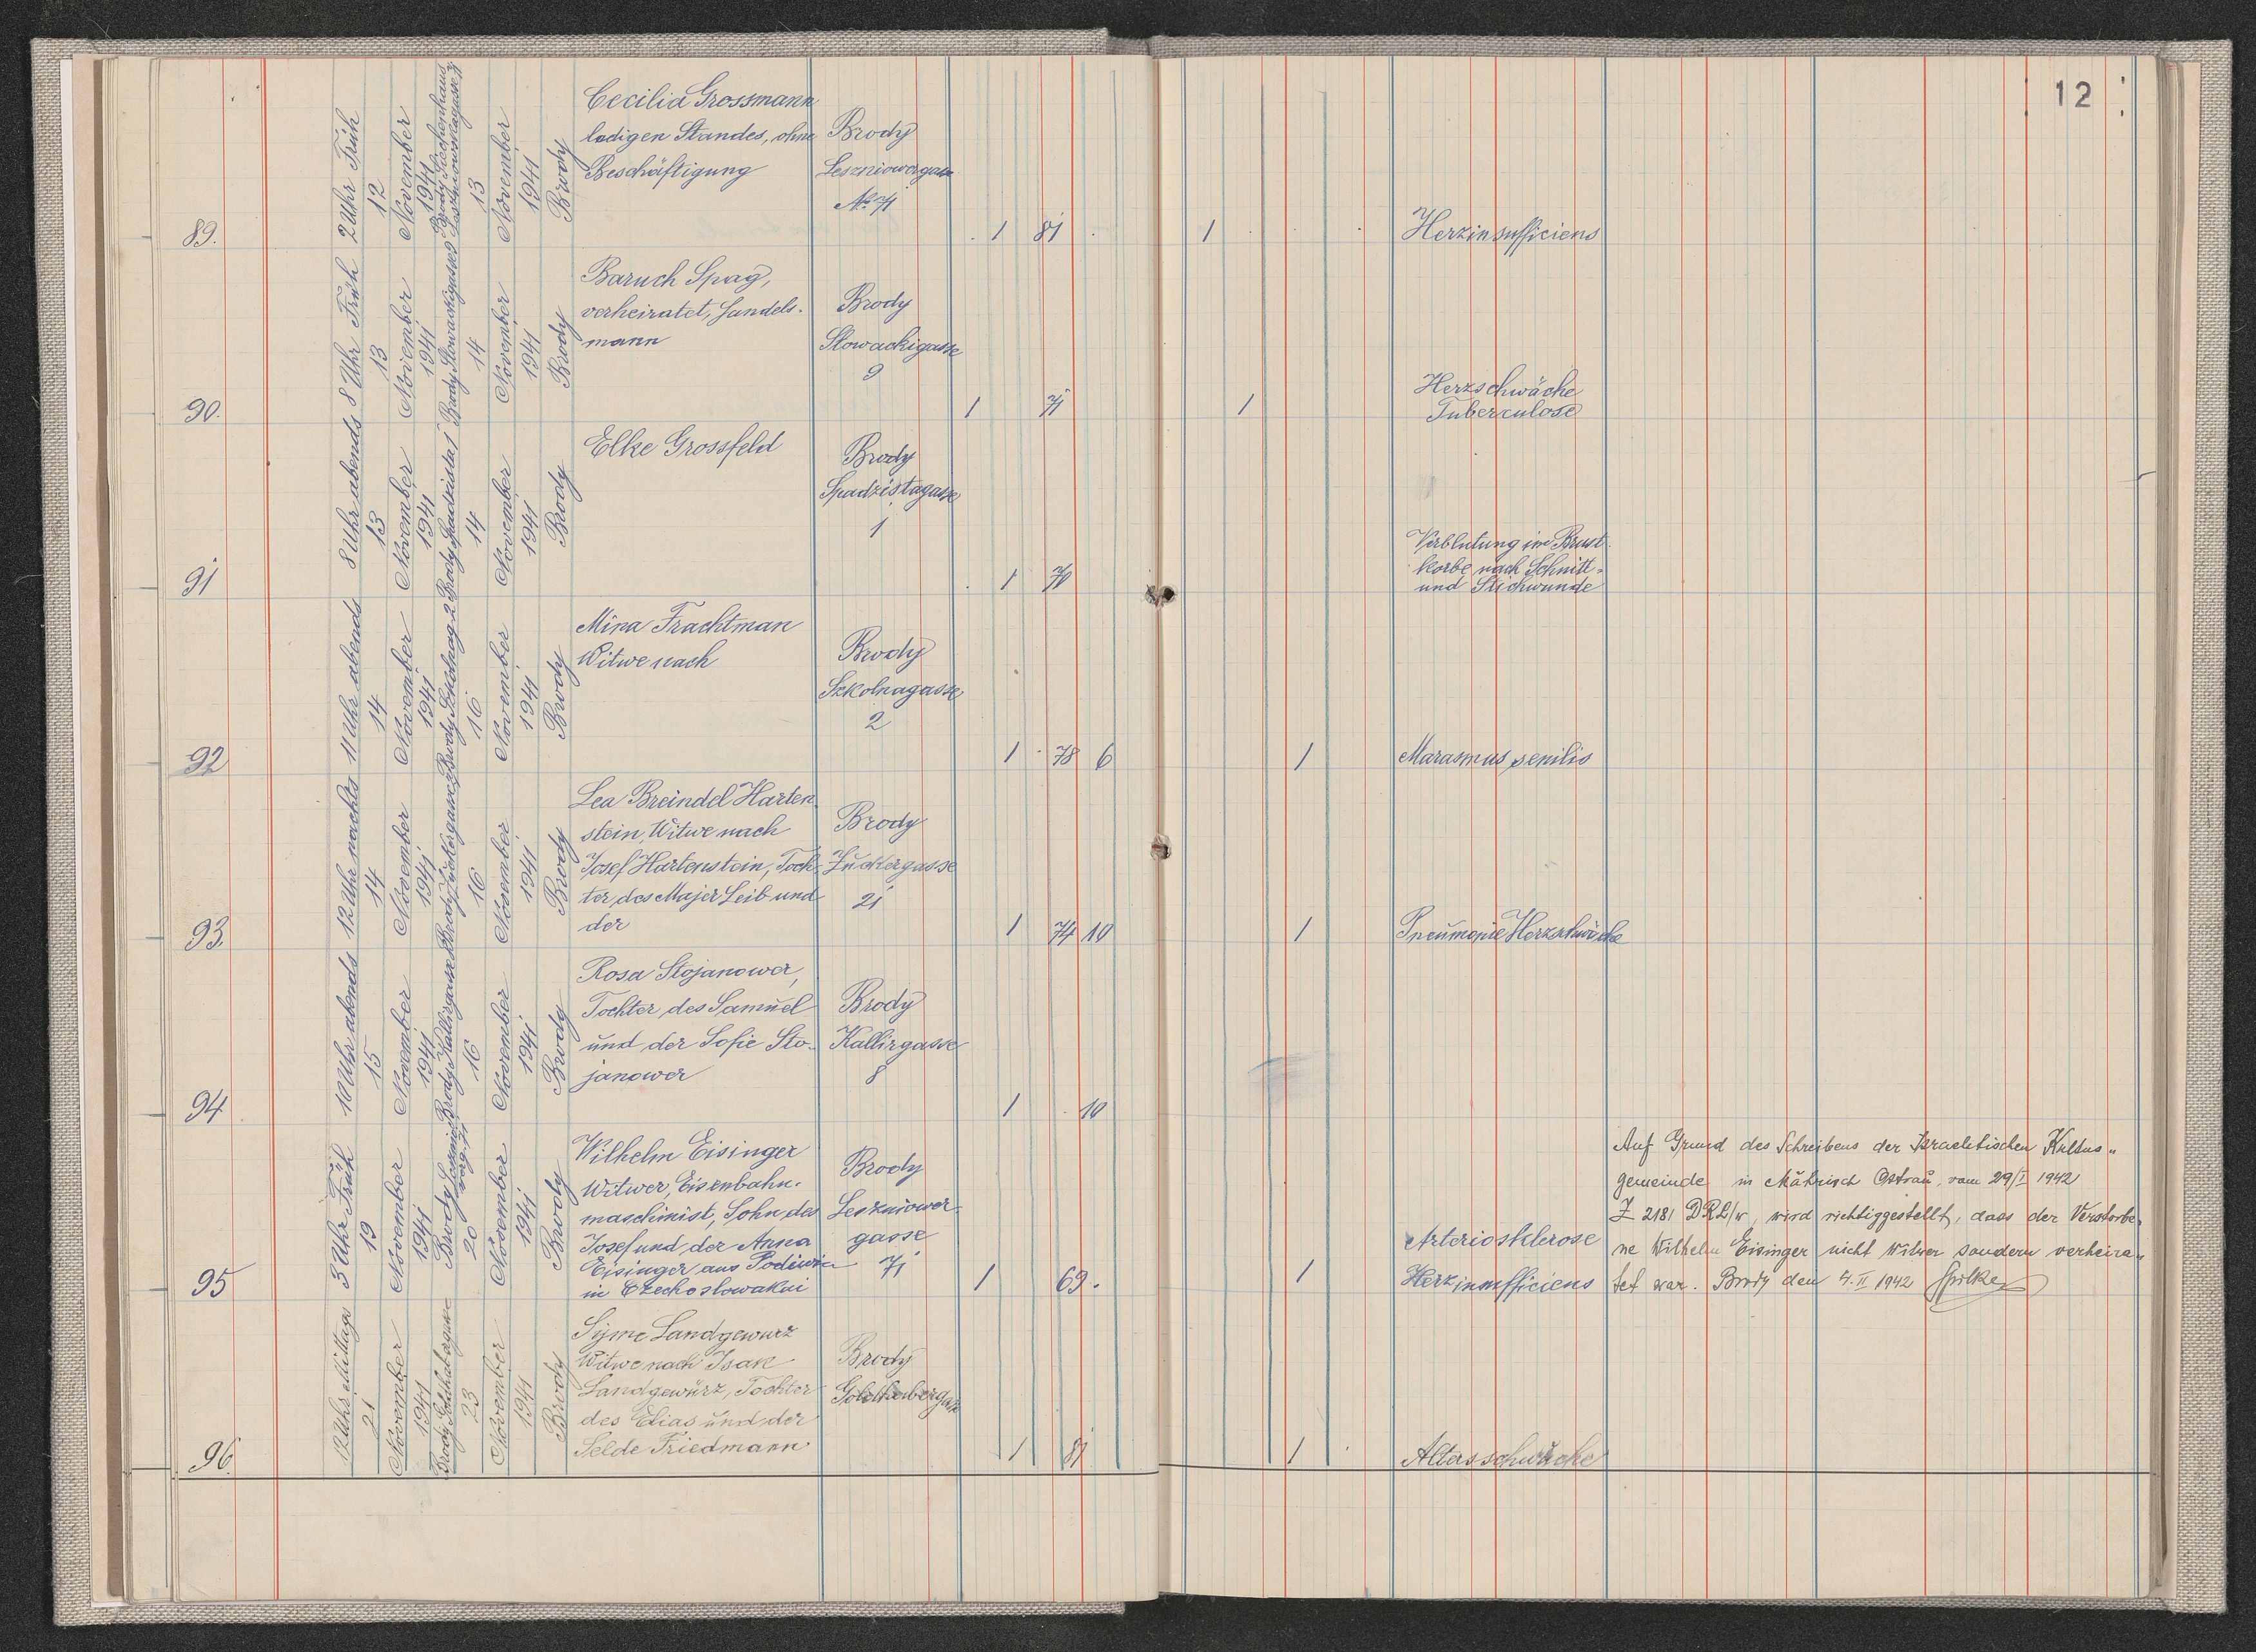 12
89.
2 Uhr Früh
12
November
1941
Brody Siechenhaus
13
November
1941
Brody
Cecilia Grossmann
ledigen Standes, ohne
Beschäftigung
Brody
Leszniowergasse
№ 71
1 81
1
Herzinsufficiens
90.
8 Uhr Früh
13
November
1941
Brody Slowackigasse 9
14
November
1941
Brody
Baruch Spag,
verheiratet, Handels-
mann
Brody
Slowackigasse
9
1 71
1
Herzschwäche
Tuberculose
91
8 Uhr abends
13
November
1941
Brody Spadzista 1
14
November
1941
Brody
Elke Grossfeld
Brody
Spadzistagasse
1
1 70
Verblutung im Brust-
korbe nach Schnitt-
und Stichwunde
92
11 Uhr abends
14
November
1941
Brody Szkolnag 2
16
November
1941
Brody
Mina Frachtman
Witwe nach
Brody
Szkolnagasse
2
1 78 6
1
Marasmus senilis
93.
12 Uhr nachts
14
November
1941
Brody Zuckergasse
16
November
1941
Brody
Lea Breindel Harten-
stein, Witwe nach
Josef Hartenstein, Toch-
ter des Majer Leib und
der
Brody
Zuckergasse
21
1 74 10
1
Pneumonie Herzschwäche
94
10 Uhr abends
15
November
1941
Brody Kallirgasse
16
November
1941
Brody
Rosa Stojanower,
Tochter des Samuel
und der Sofie Sto-
janower
Brody
Kallirgasse
8
1 10
95
3 Uhr Früh
19
November
1941
Brody
20
November
1941
Brody
Wilhelm Eisinger
Witwer, Eisenbahn-
maschinist, Sohn des
Josef und der Anna
Eisinger aus
in Czechoslowakei
Brody
Leszniower-
gasse
71
1 69.
1
Arteriosklerose
Herzinsufficiens
Auf Grund des Schreibens der Israelitischen Kultus-
gemeinde in Mährisch Ostrau, vom 29/I 1942
Z 2181 DRL/w, wird richtiggestellt, dass der Verstorbe-
ne Wilhelm Eisinger nicht Witwer sondern verheira-
tet war. Brody den 4. II 1942
96.
12 Uhr Mittags
21
November
1941
Brody
23
November
1941
Brody
Syme Landgewurz
Witwe nach Isak
Landgewürz, Tochter
des Elias und der
Selde Friedmann
Brody
1 81
1
Altersschwäche